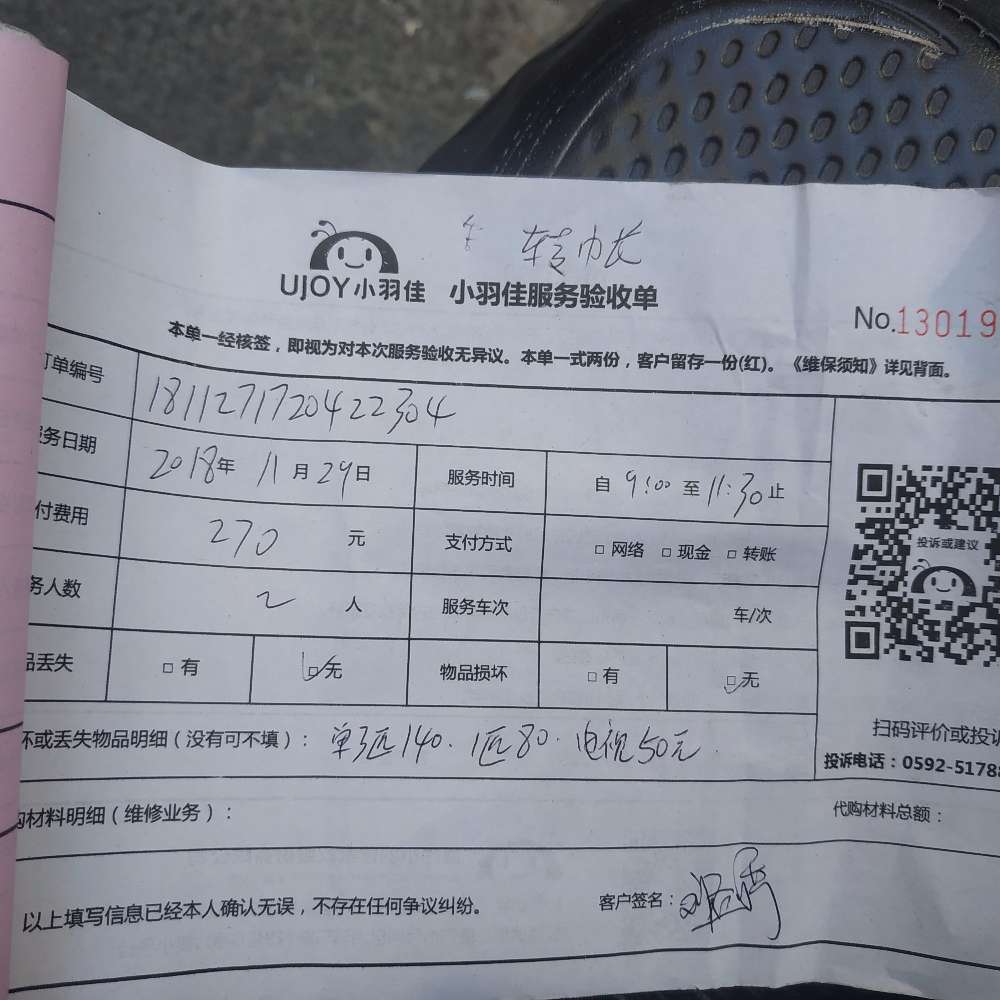 转市长
UJOY小羽佳 小羽佳服务验收单
No.13019
本单一经核签，即视为对本次服务验收无异议。本单一式两份，客户留存一份(红)。《维保须知》详见背面。
订单编号 1811271720422304
服务日期 2018年 11月29日 服务时间 自 9:00 至 11:30 止
付费用 270 元 支付方式 □ 网络 □ 现金 □ 转账
务人数 2 人 服务车次 车/次
品丢失 □ 有 □ 无 物品损坏 □ 有 □ 无
投诉或建议
坏或丢失物品明细（没有可不填）： 单3匹140. 1匹80. 电视50元
扫码评价或投诉
投诉电话：0592-5178
购材料明细（维修业务）： 代购材料总额：
以上填写信息已经本人确认无误，不存在任何争议纠纷。 客户签名：